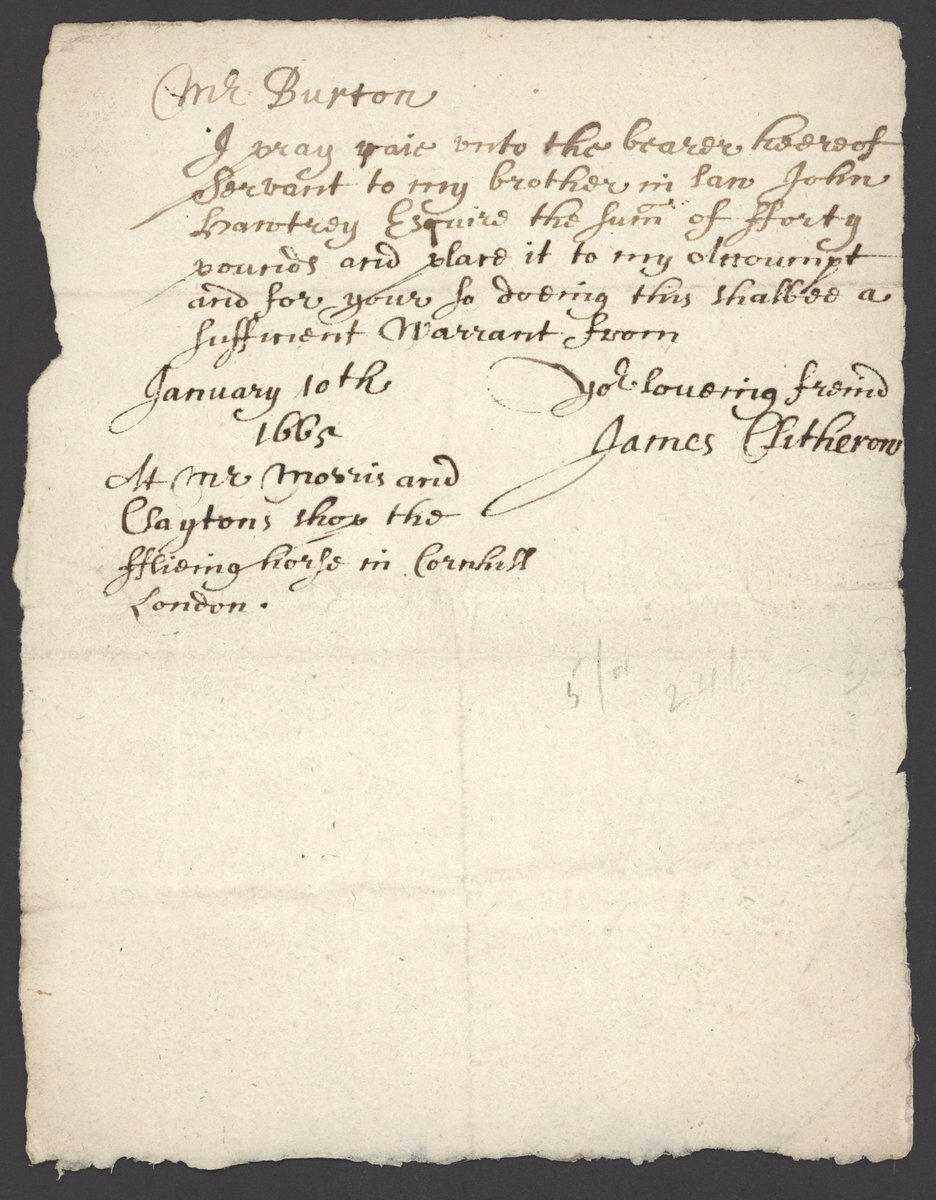 Mr Burton
I pray paie vnto the bearer heereof
Servant to my brother in law John
Hawtrey Esquire the sum̄ of fforty
pounds and place it to my Accoumpt
and for your so doeing this shalbee a
sufficient Warrant from
January 10th
1665
yor loveing freind
James Clitherow
At Mr Morris and
Claytons shop the
fflieing horse in Cornhill
London.